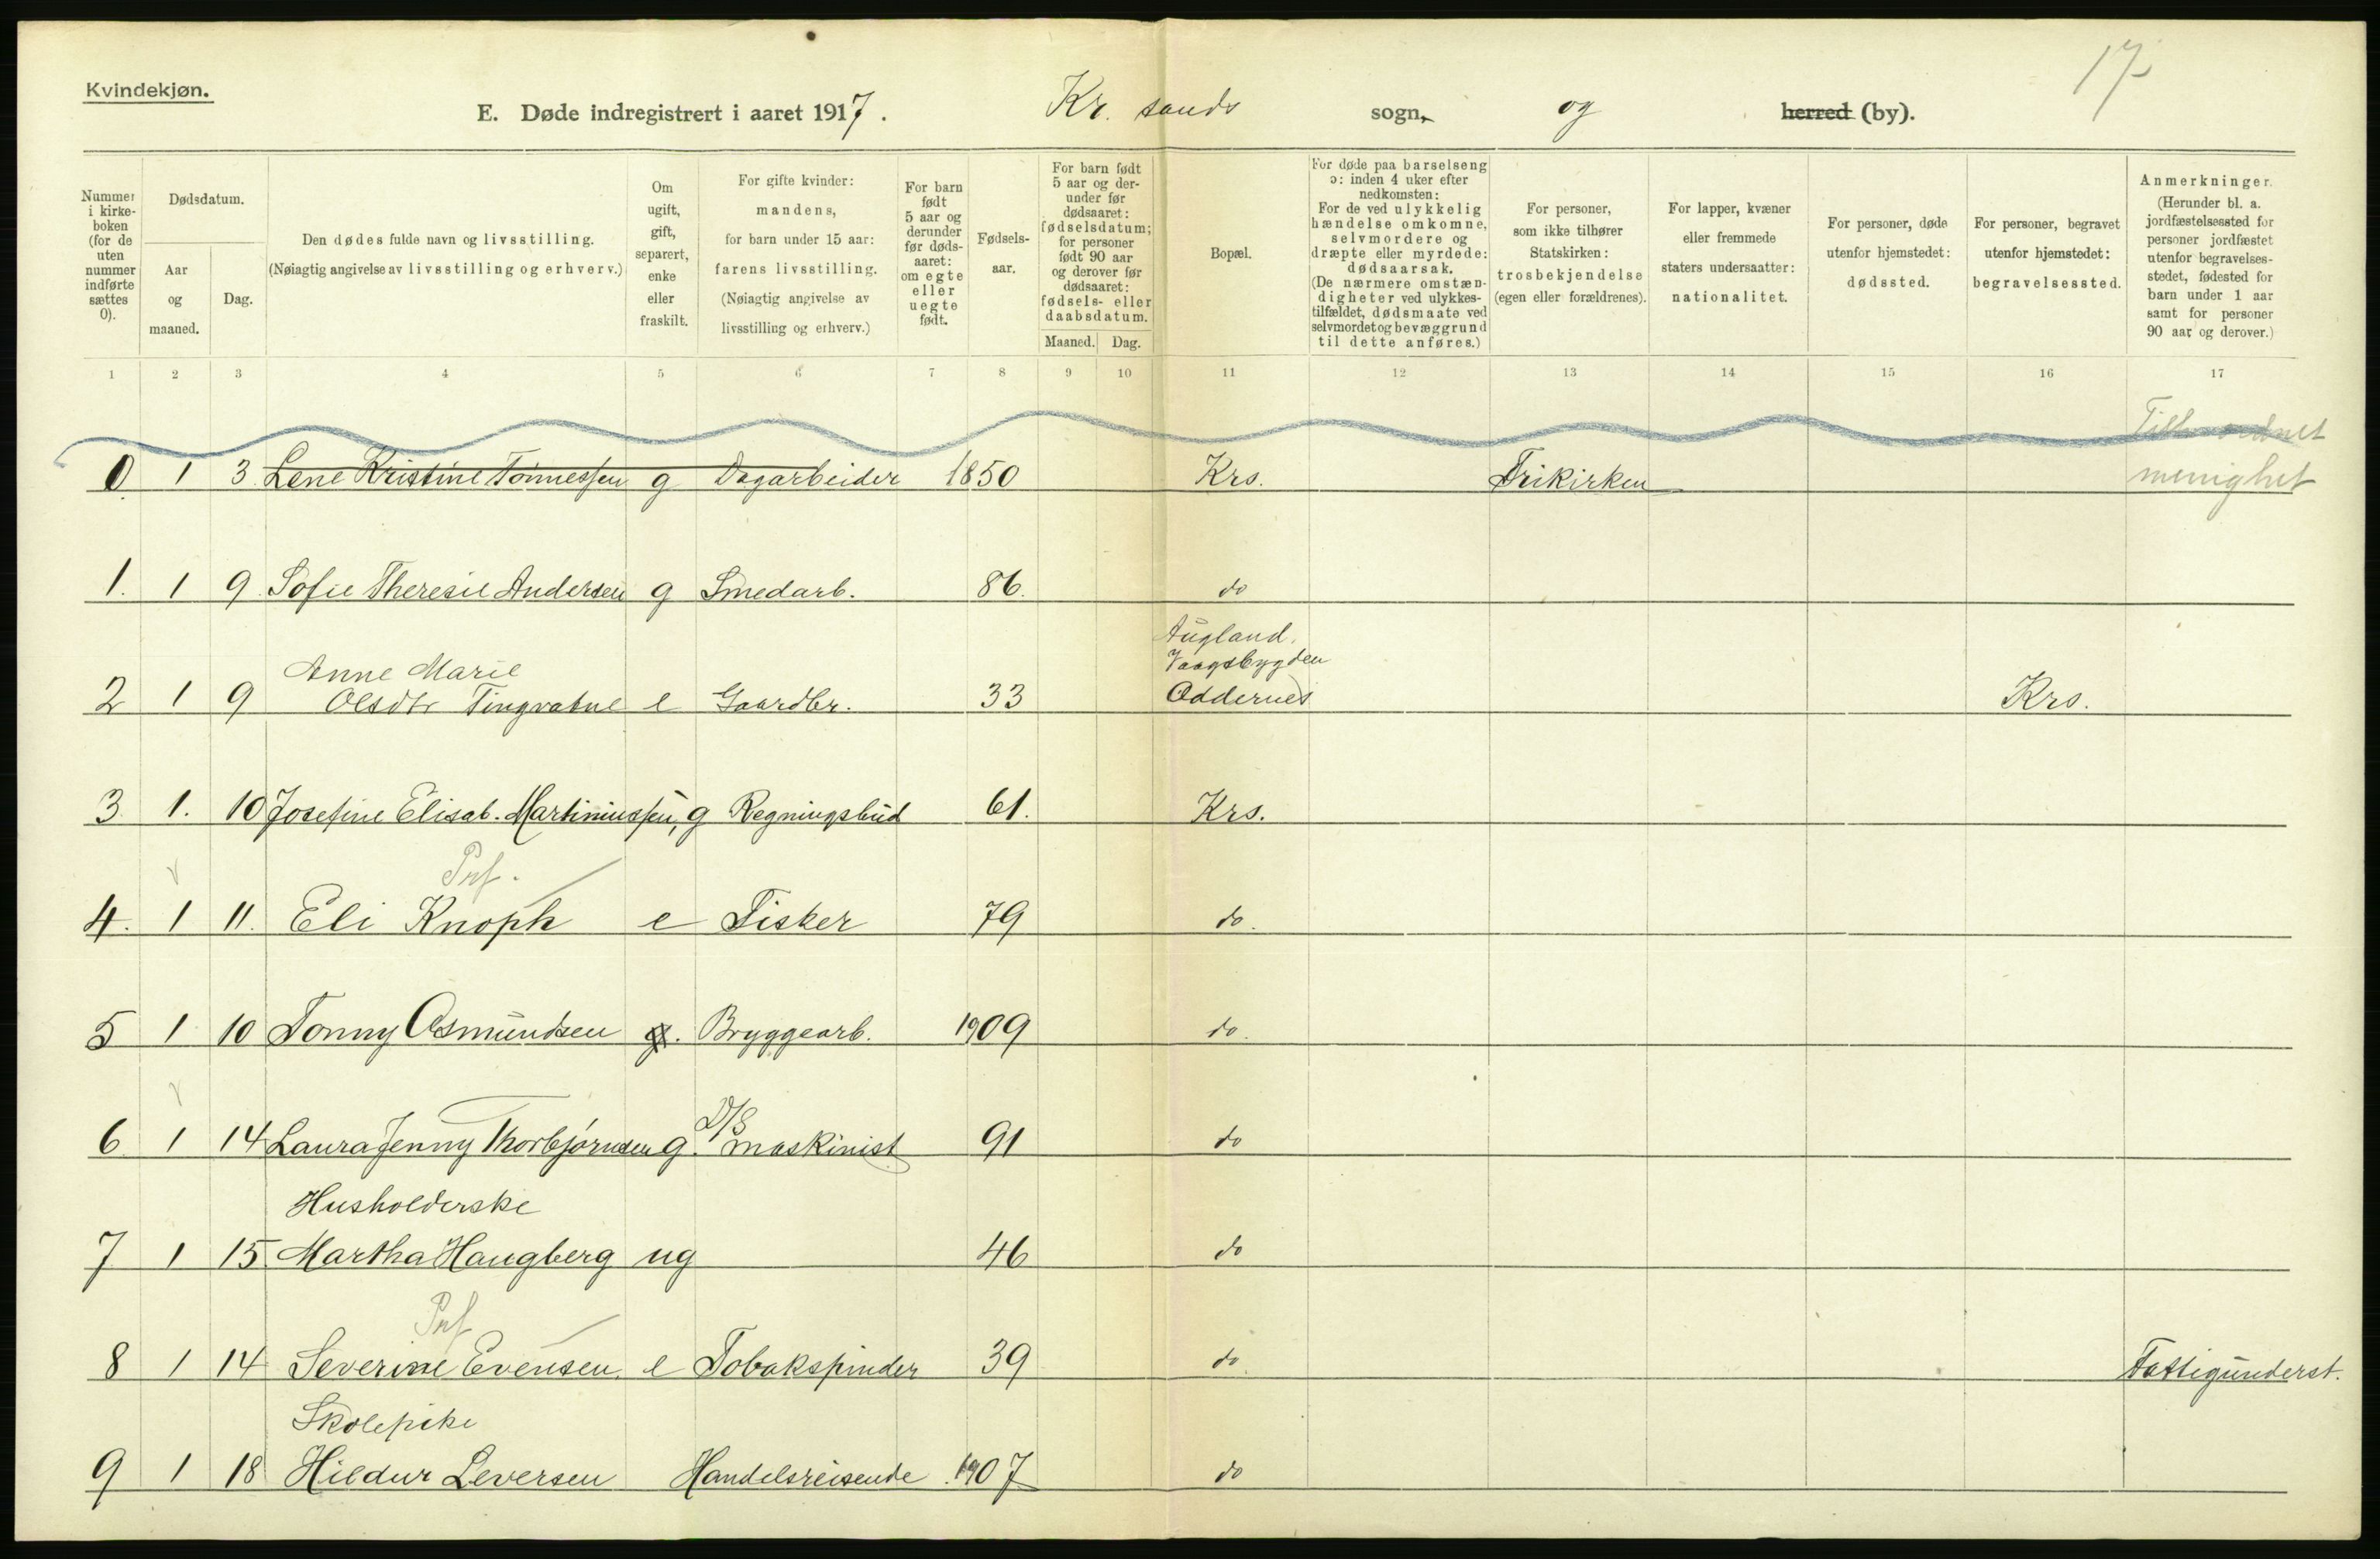 17
Kvindekjøn.
E. Døde indregistrert i aaret 1917. Kr. sands sogn, og herred (by).
Nummer i kirke-boken (for de uten nummer indførte sættes 0).
Dødsdatum.
Aar og maaned.
Dag.
Den dødes fulde navn og livsstilling.
(Nøiagtig angivelse av livsstilling og erhverv.)
Om ugift, gift, separert, enke eller fraskilt.
For gifte kvinder: mandens, for barn under 15 aar: farens livsstilling. (Nøiagtig angivelse av livsstilling og erhverv.)
For barn født 5 aar og derunder før døds-aaret: om egte eller uegte født.
Fødsels-aar.
For barn født 5 aar og der-under før dødsaaret: fødselsdatum; for personer født 90 aar og derover før dødsaaret: fødsels- eller daabsdatum.
Maaned. Dag.
Bopæl.
For døde paa barselseng ɔ: inden 4 uker efter nedkomsten: For de ved ulykkelig hændelse omkomne, selvmordere og dræpte eller myrdede: dødsaarsak. (De nærmere omstæn-digheter ved ulykkes-tilfældet, dødsmaate ved selvmordet og bevæggrund til dette anføres.)
For personer, som ikke tilhører Statskirken: trosbekjendelse (egen eller forældrenes).
For lapper, kvæner eller fremmede staters undersaatter: nationalitet.
For personer, døde utenfor hjemstedet: dødssted.
For personer, begravet utenfor hjemstedet: begravelsessted.
Anmerkninger. (Herunder bl. a. jordfæstelsessted for personer jordfæstet utenfor begravelses-stedet, fødested for barn under 1 aar samt for personer 90 aar og derover.)
1 2 3 4 5 6 7 8 9 10 11 12 13 14 15 16 17
0 1 3 Lene Kristine Tønnessen g Dagarbeider 1850 Krs. Frikirken menighet
1. 1 9 Sofie Theresie Andersen g Smedarb. 86. do
Augland.
Anne Marie Vaagsbygden
2 1 9 Olsdtr Tingvatne e Gaardbr. 33 Oddernes Krs.
3 1. 10 Josefine Elisab. Martiniussen, g Regningsbud 61. Krs.
Prf.
4. 1 11. Eli Knoph e Fisker 79 do.
5 1 10 Tonny Osmundsen g. Bryggearb. 1909 do.
D/S
6 1 14 Laura Jenny Thorbjørnsen g. maskinist 91 do
Husholderske
7 1 15 Martha Haugberg ug 46 do
Prf
8 1 14 Severine Evensen. e Tobakspinder 39 do. Fattigunderst.
Skolepike
9 1 18 Hildur Leversen Handelsreisende 1907 do